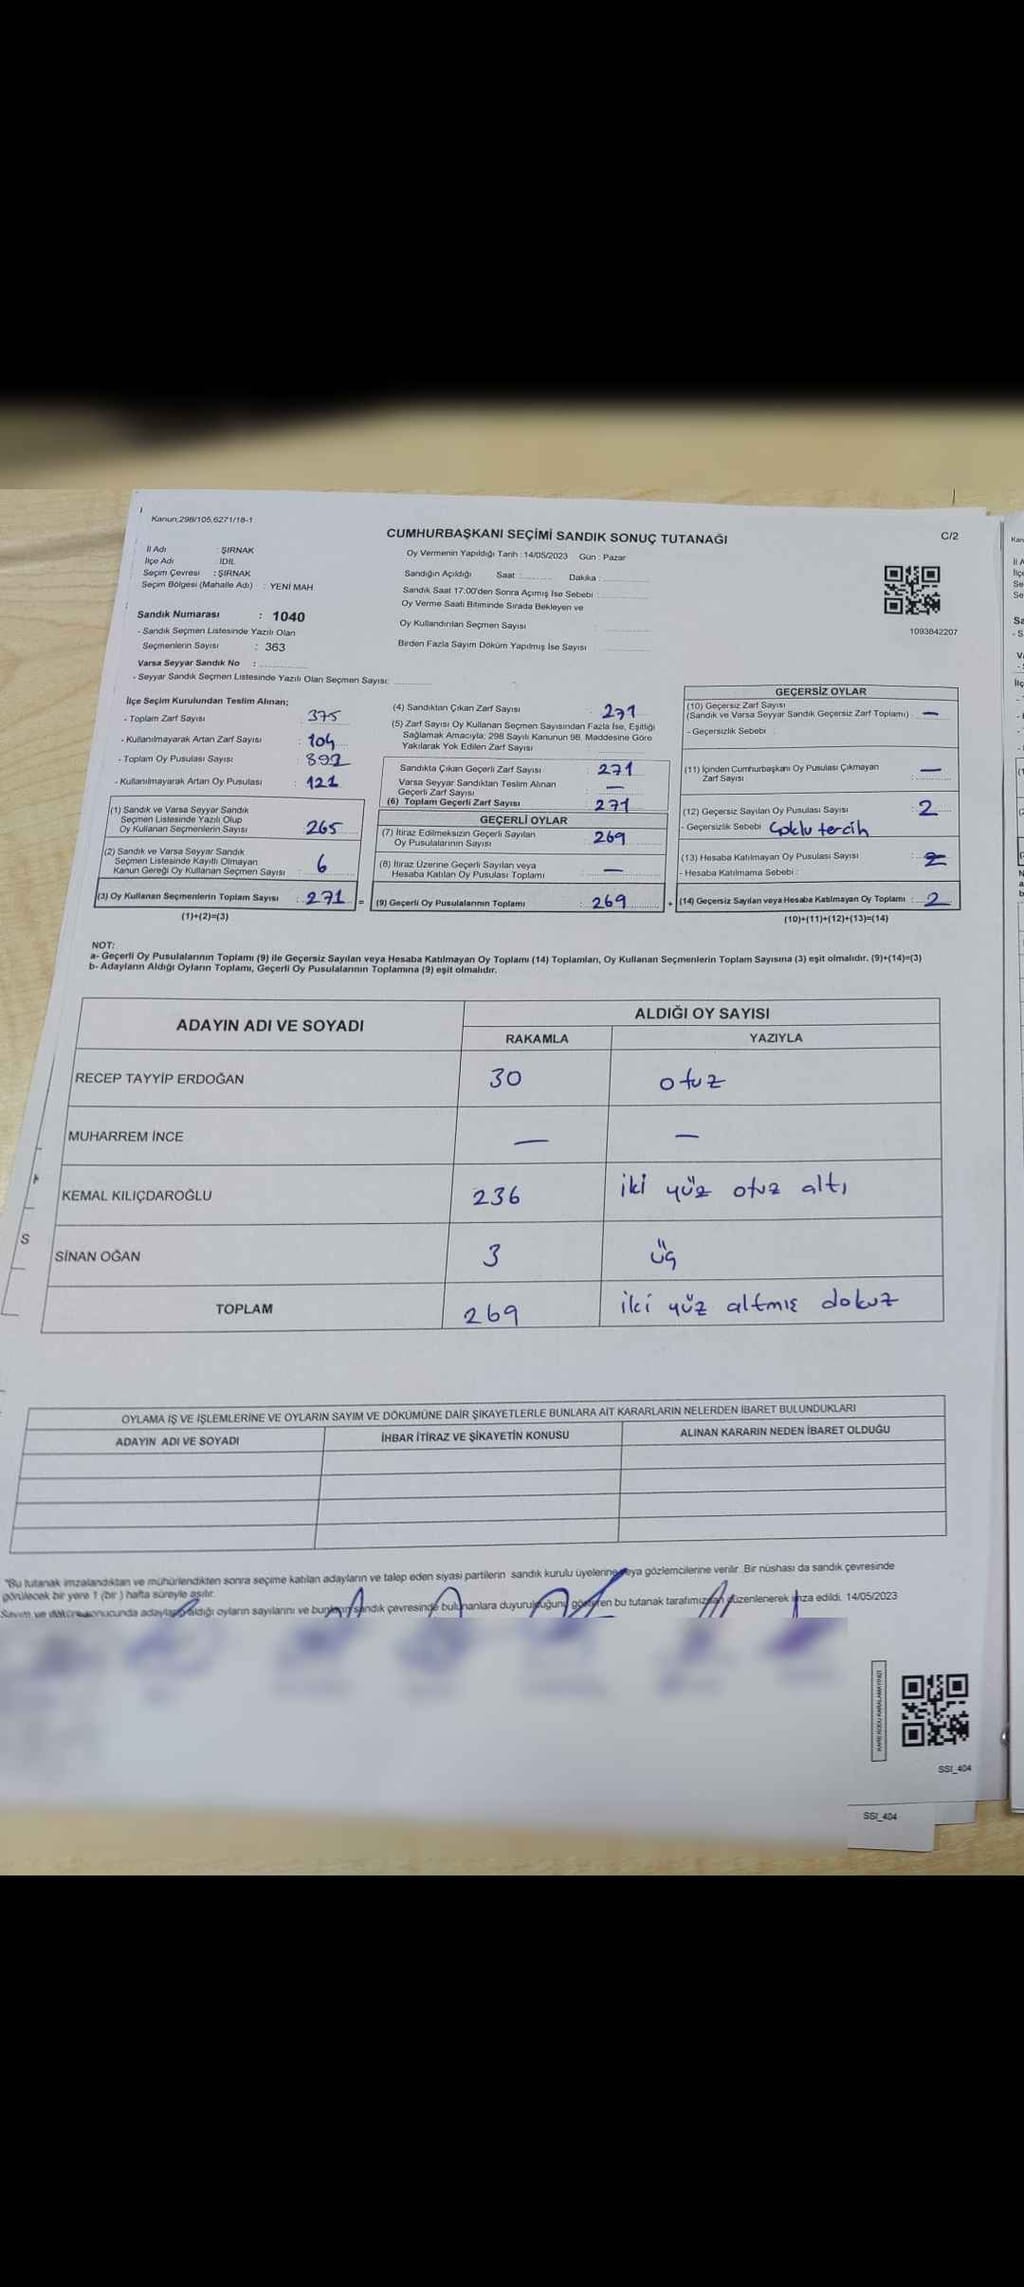 Kanun;298/105,6271/18-1
C/2
CUMHURBAŞKANI SEÇİMİ SANDIK SONUÇ TUTANAĞI
İl Adı : ŞIRNAK
İlçe Adı İDİL
Seçim Çevresi : ŞIRNAK
Seçim Bölgesi (Mahalle Adı) : YENİ MAH
Sandık Numarası : 1040
- Sandık Seçmen Listesinde Yazılı Olan
Seçmenlerin Sayısı : 363
Varsa Seyyar Sandık No :
- Seyyar Sandık Seçmen Listesinde Yazılı Olan Seçmen Sayısı:
Oy Vermenin Yapıldığı Tarih : 14/05/2023 Gün : Pazar
Sandığın Açıldığı Saat : Dakika :
Sandık Saat 17.00'den Sonra Açımış İse Sebebi :
Oy Verme Saati Bitiminde Sırada Bekleyen ve
Oy Kullandırılan Seçmen Sayısı :
Birden Fazla Sayım Döküm Yapılmış İse Sayısı
1093842207
İlçe Seçim Kurulundan Teslim Alınan;
- Toplam Zarf Sayısı : 375
- Kullanılmayarak Artan Zarf Sayısı : 104
- Toplam Oy Pusulası Sayısı : 892
- Kullanılmayarak Artan Oy Pusulası : 121
(1) Sandık ve Varsa Seyyar Sandık
Seçmen Listesinde Yazılı Olup
Oy Kullanan Seçmenlerin Sayısı : 265
(2) Sandık ve Varsa Seyyar Sandık
Seçmen Listesinde Kayıtlı Olmayan
Kanun Gereği Oy Kullanan Seçmen Sayısı : 6
(3) Oy Kullanan Seçmenlerin Toplam Sayısı : 271 =
(1)+(2)=(3)
(4) Sandıktan Çıkan Zarf Sayısı : 271
(5) Zarf Sayısı Oy Kullanan Seçmen Sayısından Fazla İse, Eşitliği
Sağlamak Amacıyla; 298 Sayılı Kanunun 98. Maddesine Göre
Yakılarak Yok Edilen Zarf Sayısı
Sandıkta Çıkan Geçerli Zarf Sayısı : 271
Varsa Seyyar Sandıktan Teslim Alınan
Geçerli Zarf Sayısı : —
(6) Toplam Geçerli Zarf Sayısı : 271
GEÇERLİ OYLAR
(7) İtiraz Edilmeksizin Geçerli Sayılan
Oy Pusulalarının Sayısı : 269
(8) İtiraz Üzerine Geçerli Sayılan veya
Hesaba Katılan Oy Pusulası Toplamı : —
(9) Geçerli Oy Pusulalarının Toplamı : 269 +
GEÇERSİZ OYLAR
(10) Geçersiz Zarf Sayısı
(Sandık ve Varsa Seyyar Sandık Geçersiz Zarf Toplamı) : —
- Geçersizlik Sebebi :
(11) İçinden Cumhurbaşkanı Oy Pusulası Çıkmayan
Zarf Sayısı : —
(12) Geçersiz Sayılan Oy Pusulası Sayısı : 2
- Geçersizlik Sebebi : Çoklu tercih
(13) Hesaba Katılmayan Oy Pusulası Sayısı :
- Hesaba Katılmama Sebebi :
(14) Geçersiz Sayılan veya Hesaba Katılmayan Oy Toplamı : 2
(10)+(11)+(12)+(13)=(14)
NOT:
a- Geçerli Oy Pusulalarının Toplamı (9) ile Geçersiz Sayılan veya Hesaba Katılmayan Oy Toplamı (14) Toplamları, Oy Kullanan Seçmenlerin Toplam Sayısına (3) eşit olmalıdır. (9)+(14)=(3)
b- Adayların Aldığı Oyların Toplamı, Geçerli Oy Pusulalarının Toplamına (9) eşit olmalıdır.
ADAYIN ADI VE SOYADI ALDIĞI OY SAYISI
RAKAMLA YAZIYLA
RECEP TAYYİP ERDOĞAN 30 otuz
MUHARREM İNCE — —
KEMAL KILIÇDAROĞLU 236 iki yüz otuz altı
SİNAN OĞAN 3 üç
TOPLAM 269 iki yüz altmış dokuz
OYLAMA İŞ VE İŞLEMLERİNE VE OYLARIN SAYIM VE DÖKÜMÜNE DAİR ŞİKAYETLERLE BUNLARA AİT KARARLARIN NELERDEN İBARET BULUNDUKLARI
ADAYIN ADI VE SOYADI İHBAR İTİRAZ VE ŞİKAYETİN KONUSU ALINAN KARARIN NEDEN İBARET OLDUĞU
"Bu tutanak imzalandıktan ve mühürlendikten sonra seçime katılan adayların ve talep eden siyasi partilerin sandık kurulu üyelerine veya gözlemcilerine verilir. Bir nüshası da sandık çevresinde
görülecek bir yere 1 (bir ) hafta süreyle asılır.
Sayım ve döküm sonucunda adayların aldığı oyların sayılarını ve bunların sandık çevresinde bulunanlara duyurulduğunu gösteren bu tutanak tarafımızdan düzenlenerek imza edildi. 14/05/2023
SSI_404
SSI_404